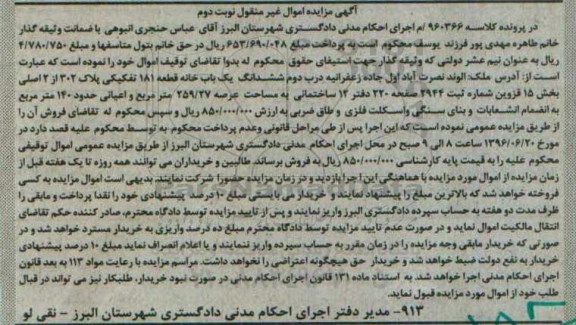 آگهی مزایده اموال غیر منقول نوبت دوم
در پرونده کلاسه ۹۶۰۳۶۶/م اجرای احکام مدنی دادگستری شهرستان البرز آقای عباس حنجری انبوهی با ضمانت وثیقه گذار
خانم طاهره مهدی پور فرزند یوسف محکوم است به پرداخت مبلغ ۶۵۳/۶۹۰/۰۴۸ ریال در حق خانم بتول متاسفها و مبلغ ۴/۷۸۰/۷۵۰
ریال به عنوان نیم عشر دولتی که وثیقه گذار جهت استیفای حقوق محکوم له بدوا تقاضای توقیف اموال خود را نموده است که عبارت
است از: آدرس ملک: الوند نصرت آباد اول جاده زعفرانیه درب دوم ششدانگ یک باب خانه قطعه ۱۸۱ تفکیکی پلاک ۳۰۲ از ۲ اصلی
بخش ۱۵ قزوین شماره ثبت ۲۹۴۴ صفحه ۲۲۰ دفتر ۱۲ ساختمانی به مساحت عرصه ۲۵۹/۲۷ متر مربع و اعیانی حدود ۱۴۰ متر مربع
به انضمام انشعابات و بنای سنگی واسکلت فلزی و طاق ضربی به ارزش ۸۵۰/۰۰۰/۰۰۰ ریال و سپس محکوم له تقاضای فروش آن را
از طریق مزایده عمومی نموده است که این اجرا پس از طی مراحل قانونی وعدم پرداخت محکوم به توسط محکوم علیه قصد دارد در
مورخ ۱۳۹۶/۰۶/۲۰ ساعت ۸ الی ۹ صبح در محل اجرای احکام مدنی دادگستری شهرستان البرز از طریق مزایده عمومی اموال توقیفی
محکوم علیه را به قیمت پایه کارشناسی ۸۵۰/۰۰۰/۰۰۰ ریال به فروش برساند. طالبین و خریداران می توانند همه روزه تا یک هفته قبل از
زمان مزایده از اموال مورد مزایده با هماهنگی این اجرا بازدید و در زمان مزایده حضورا شرکت نمایند. بدیهی است اموال مزایده به کسی
فروخته خواهد شد که بالاترین مبلغ را پیشنهاد نمایند و خریدار می بایستی مبلغ ۱۰ درصد پیشنهادی خود را نقدا پرداخت و مابقی را
ظرف مدت دو هفته به حساب سپرده دادگستری البرز واریز نمایند و پس از تایید مزایده توسط دادگاه محترم، صادر کننده حکم تقاضای
انتقال مالکیت اموال نماید و در صورت عدم تایید مزایده توسط دادگاه محترم مبلغ ده درصد واریزی به خریدار مسترد خواهد شد و در
صورتی که خریدار مابقی وجه مزایده را در زمان مقرر به حساب سپرده واریز ننمایند و یا اعلام انصراف نماید مبلغ ۱۰ درصد پیشنهادی
خریدار به نفع دولت ضبط خواهد شد و خریدار حق هیچگونه اعتراضی را نخواهد داشت. مراسم مزایده با رعایت مواد ۱۱۳ به بعد قانون
اجرای احکام مدنی اجرا خواهد شد. به استناد ماده ۱۳۱ قانون اجرای احکام مدنی در صورت نبود خریدار، طلبکار نیز می تواند در قبال
طلب خود از اموال مورد مزایده قبول نماید.
۹۱۳- مدیر دفتر اجرای احکام مدنی دادگستری شهرستان البرز - نقی لو